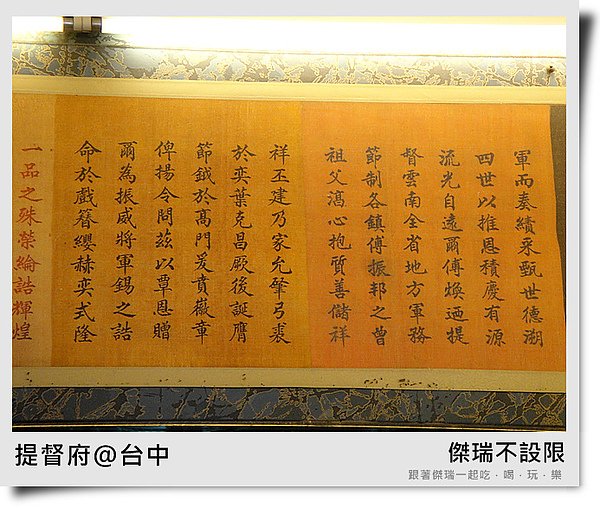 軍而奏績采甄世德溯
四世以推恩積慶有源
流光自遠爾傅煥迺提
督雲南全省地方軍務
節制各鎮傅振邦之曾
祖父滈心抱質善儲祥
祥丕建乃家允肇弓裘
於奕葉克昌厥後誕膺
節鉞於高門爰賁薇章
俾揚令問茲以覃恩贈
爾為振威將軍錫之誥
命於戲簪纓赫奕式隆
一品之殊榮綸誥輝煌
提督府@台中
傑瑞不設限
跟著傑瑞一起吃．喝．玩．樂